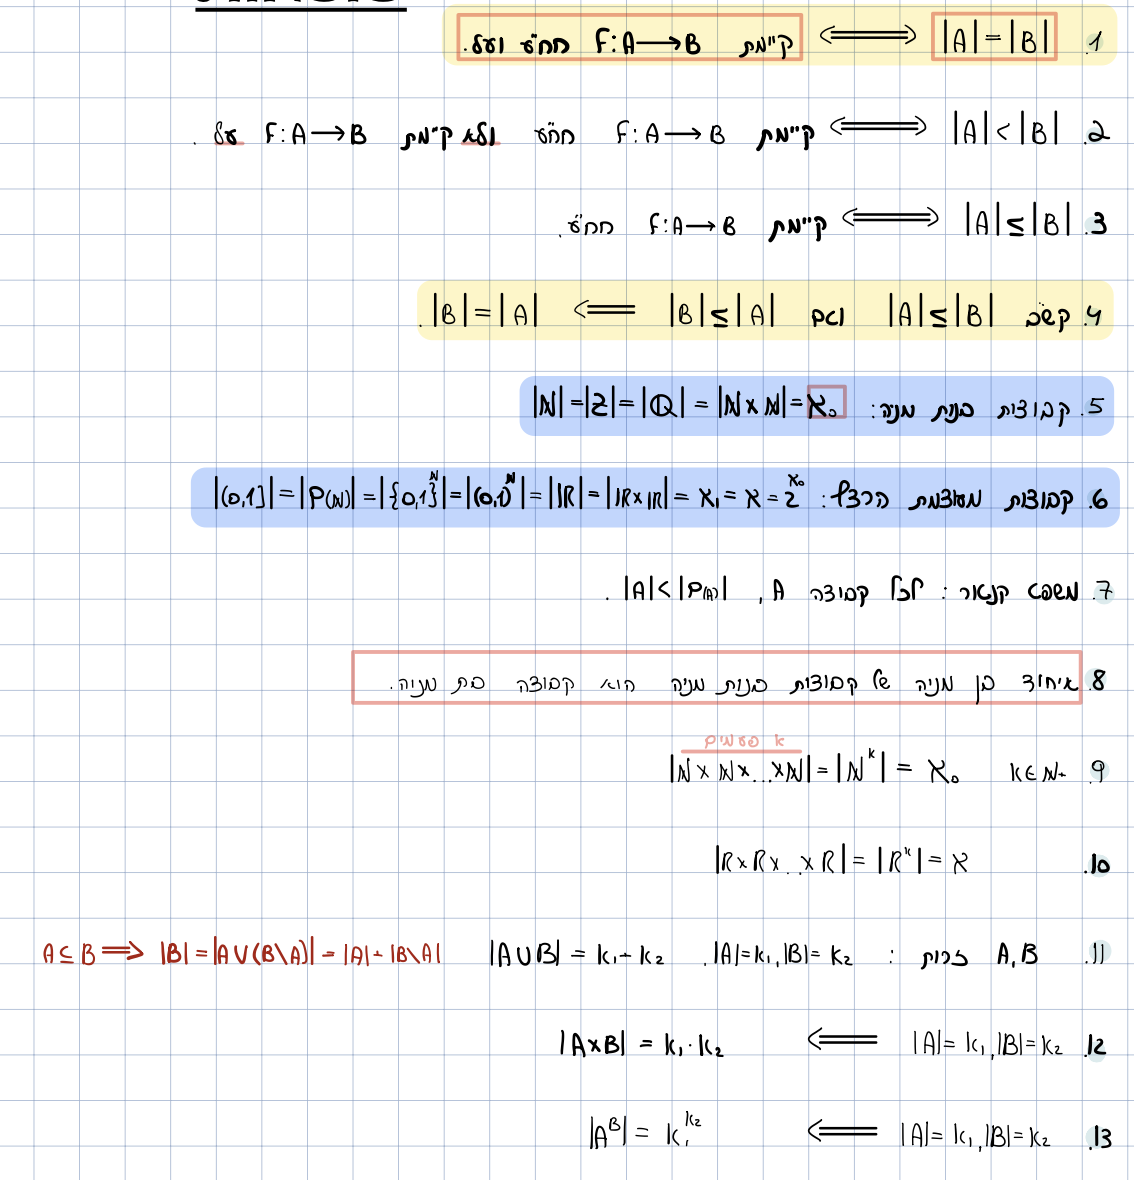 1. |A|=|B| ⟺ קיימת F:A→B חח"ע ועל.
2. |A|<|B| ⟺ קיימת F:A→B חח"ע ולא קיימת F:A→B על.
3. |A|≤|B| ⟺ קיימת F:A→B חח"ע.
4. קש"ב |A|≤|B| ואם |B|≤|A| ⟸ |B|=|A|.
5. קבוצות בנות מניה: |ℕ|=|ℤ|=|ℚ|=|ℕ×ℕ|=ℵ₀
6. קבוצות מעוצמת הרצף: |(0,1]|=|P(ℕ)|=|{0,1}^ℕ|=|(0,1)^ℕ|=|ℝ|=|ℝ×ℝ|=ℵ₁=ℵ=2^ℵ₀
7. משפט קנטור: לכל קבוצה A, |A|<|P(A)|.
8. איחוד בן מניה של קבוצות בנות מניה הוא קבוצה בת מניה.
k פעמים
9. k∈ℕ |ℕ×ℕ×...×ℕ|=|ℕ^k|=ℵ₀
10. |R×R×...×R|=|R^k|=ℵ
11. A,B זרות: |A|=k₁,|B|=k₂. |A∪B|=k₁+k₂ A⊆B ⟹ |B|=|A∪(B\A)|=|A|+|B\A|
12. |A|=k₁,|B|=k₂ ⟸ |A×B|=k₁·k₂
13. |A|=k₁,|B|=k₂ ⟸ |A^B|=k₁^k₂